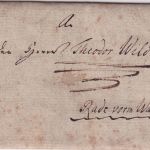 An
den Herrn Theodor Weld
Rade vorm W